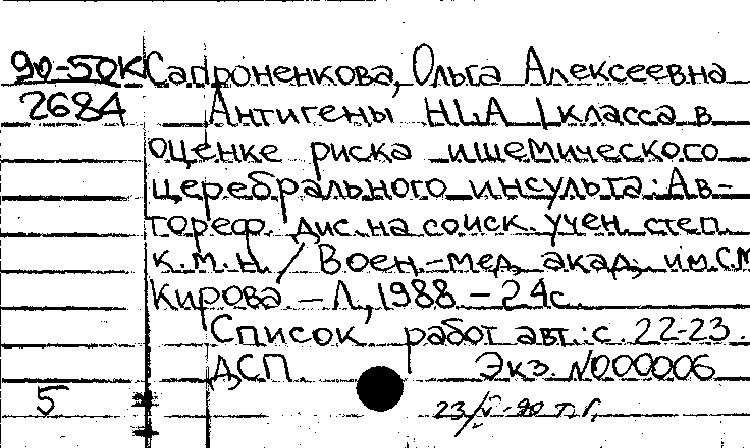 90-50К Сапроненкова, Ольга Алексеевна
2684 Антигены HLA I класса в
оценке риска ишемического
церебрального инсульта: Ав-
тореф. дис. на соиск. учен. степ.
к.м.н. / Воен.-мед. акад. им. С.М.
Кирова. - Л., 1988 - 24 с.
Список работ авт.: с. 22-23.
ДСП. Экз. N000006
5
23/V-90